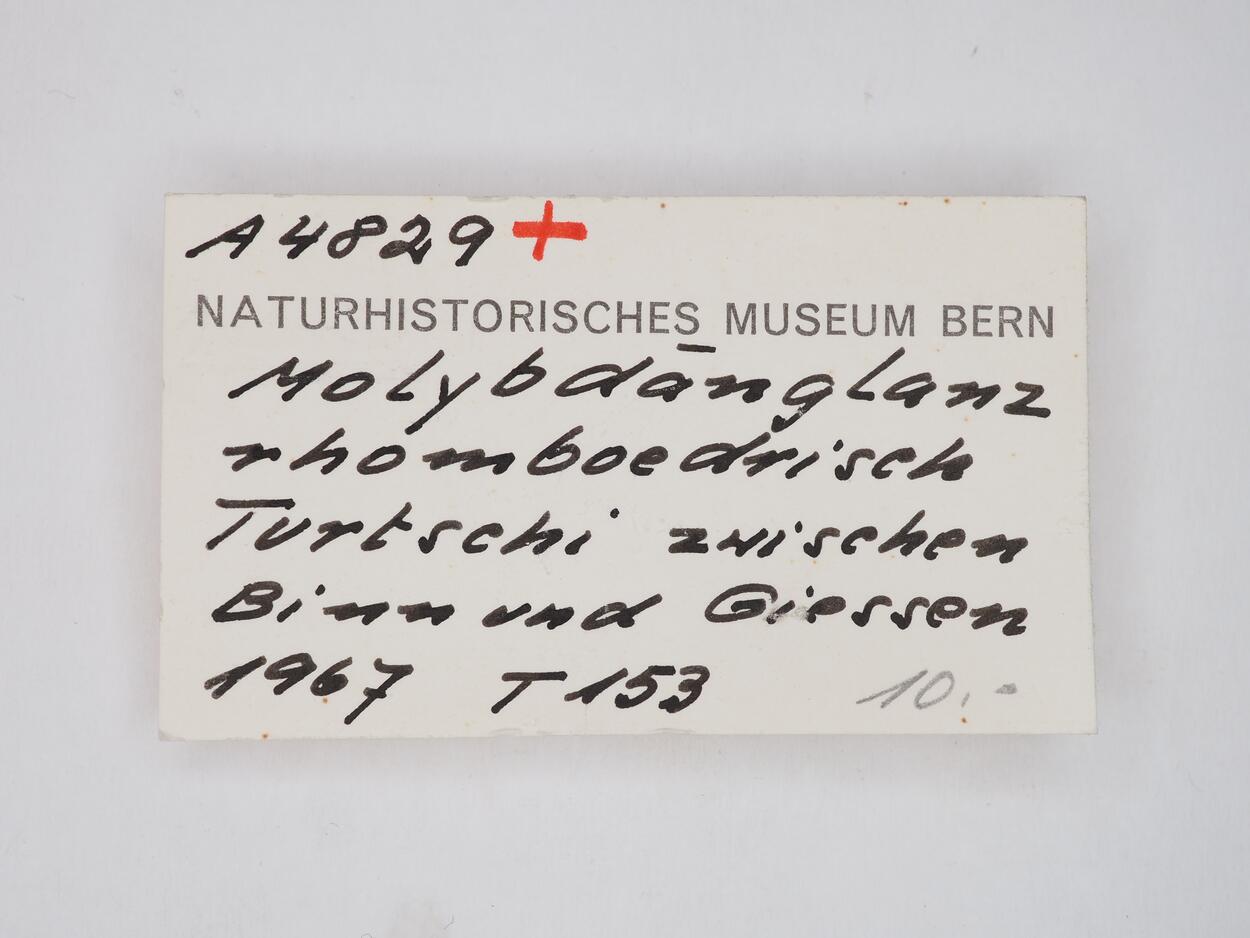 A4829 +
NATURHISTORISCHES MUSEUM BERN
Molybdänglanz
rhomboedrisch
Turtschi zwischen
Binn und Giessen
1967 T 153 10.-